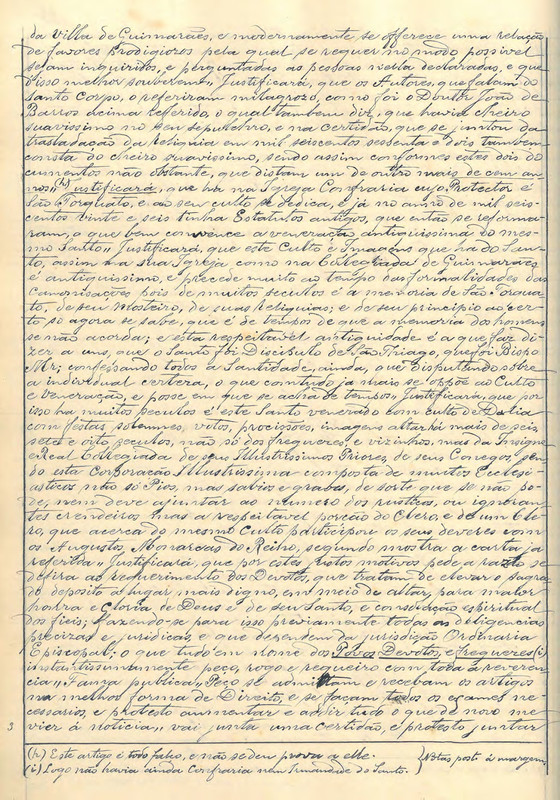 da Villa de Guimarães, e modernamente se offerece uma relação
de favores prodigiozos pela qual se requer no modo possivel
sejam inquiridos, e perguntadas as pessoas nella declaradas, e que
d'isso melhor souberem". Justificará, que os Autores, que falam do
Santo Corpo, o referiram milagrozo, como foi o Doutor João de
Barros acima referido, o qual tambem diz, que havia cheiro
suavissimo no seu sepulchro, e na certidão, que se juntou da
trasladação da reliquia em mil seiscentos sessenta e dois tambem
consta do cheiro suavissimo, sendo assim conformes estes dois do
cumentos não obstante, que distam um de outro mais de cem an
nos" (h) Justificará, que ha na Igreja Confraria cujo Protector é
São Torquato, e ao seu culto se dedica, e já no anno de mil seis-
centos vinte e seis tinha Estatutos antigos, que então se reforma-
ram, o que bem convence a veneração antiquissima do mes-
mo Santo". Justificará, que este Culto e Imagens que ha do San-
to, assim na sua Igreja como na Collegiada de Guimarães
é antiquissimo, e precede muito ao tempo das formalidades das
Canonisações pois de muitos seculos é a memoria de São Torqua
to, de seu Mosteiro, de suas reliquias; e de seu principio ao cer-
to só agora se sabe, que é de tempos de que a memoria dos homens
se não acorda; e esta respeitavel antiguidade é a que faz di-
zer a uns, que o Santo foi Discipulo de São Thiago, que foi Bispo
Mr; confessando todos a Santidade, ainda, que disputando sobre
a individual certeza, o que comtudo já mais se oppoe ao Culto
e veneração, e posse em que se acha de tempos, Justificará que por
isso ha muitos seculos é este Santo venerado com culto de Dulia
com festas solemnes, votos, procissões, imagens altar ha mais de seis
sete e oito seculos, não só dos freguezes, e vizinhos, mas da Insigne
e Real Collegiada de seus Illustrissimos Priores, de seus Conegos, sen-
do esta Corporação Illustrissima composta de muitos Ecclesi-
asticos não só Pios, mas sabios e graves, de sorte que se não po-
de, nem deve ajuntar ao numero dos rusticos, ou ignoran-
tes crendeiros mas a respeitavel porção do Clero, e de um Cle-
ro, que acerca do mesmo Culto participou os seus deveres com
os Augustos Monarcas do Reino, segundo mostra a carta já
referida". Justificará, que por estes justos motivos pede a razão se
defira ao requerimento dos Devotos, que tratam de elevar o sagra-
do deposito a lugar mais digno, em meio de altar, para maior
honra e Gloria de Deus e de seu Santo, e consolação espiritual
dos fieis; fazendo-se para isso previamente todas as deligencias
precizas e juridicas, e que dependem da jurisdição Ordinaria
Episcopal; o que tudo em nome dos Povos Devotos, e freguezes (i)
instantissimamente peço, rogo e requeiro com toda a reveren-
cia". Fama publica". Peço se admittam e recebam os artigos
na melhor forma de Direito, e se façam todos os exames ne-
cessarios, e protesto aumentar e addir tudo o que de novo me
3 vier á noticia", vai junta uma certidão, e protesto juntar
(h) Este artigo é todo falso, e não se deu prova a elle.
(i) Logo não havia ainda Confraria nem Irmandade do Santo. } Notas posti á margem